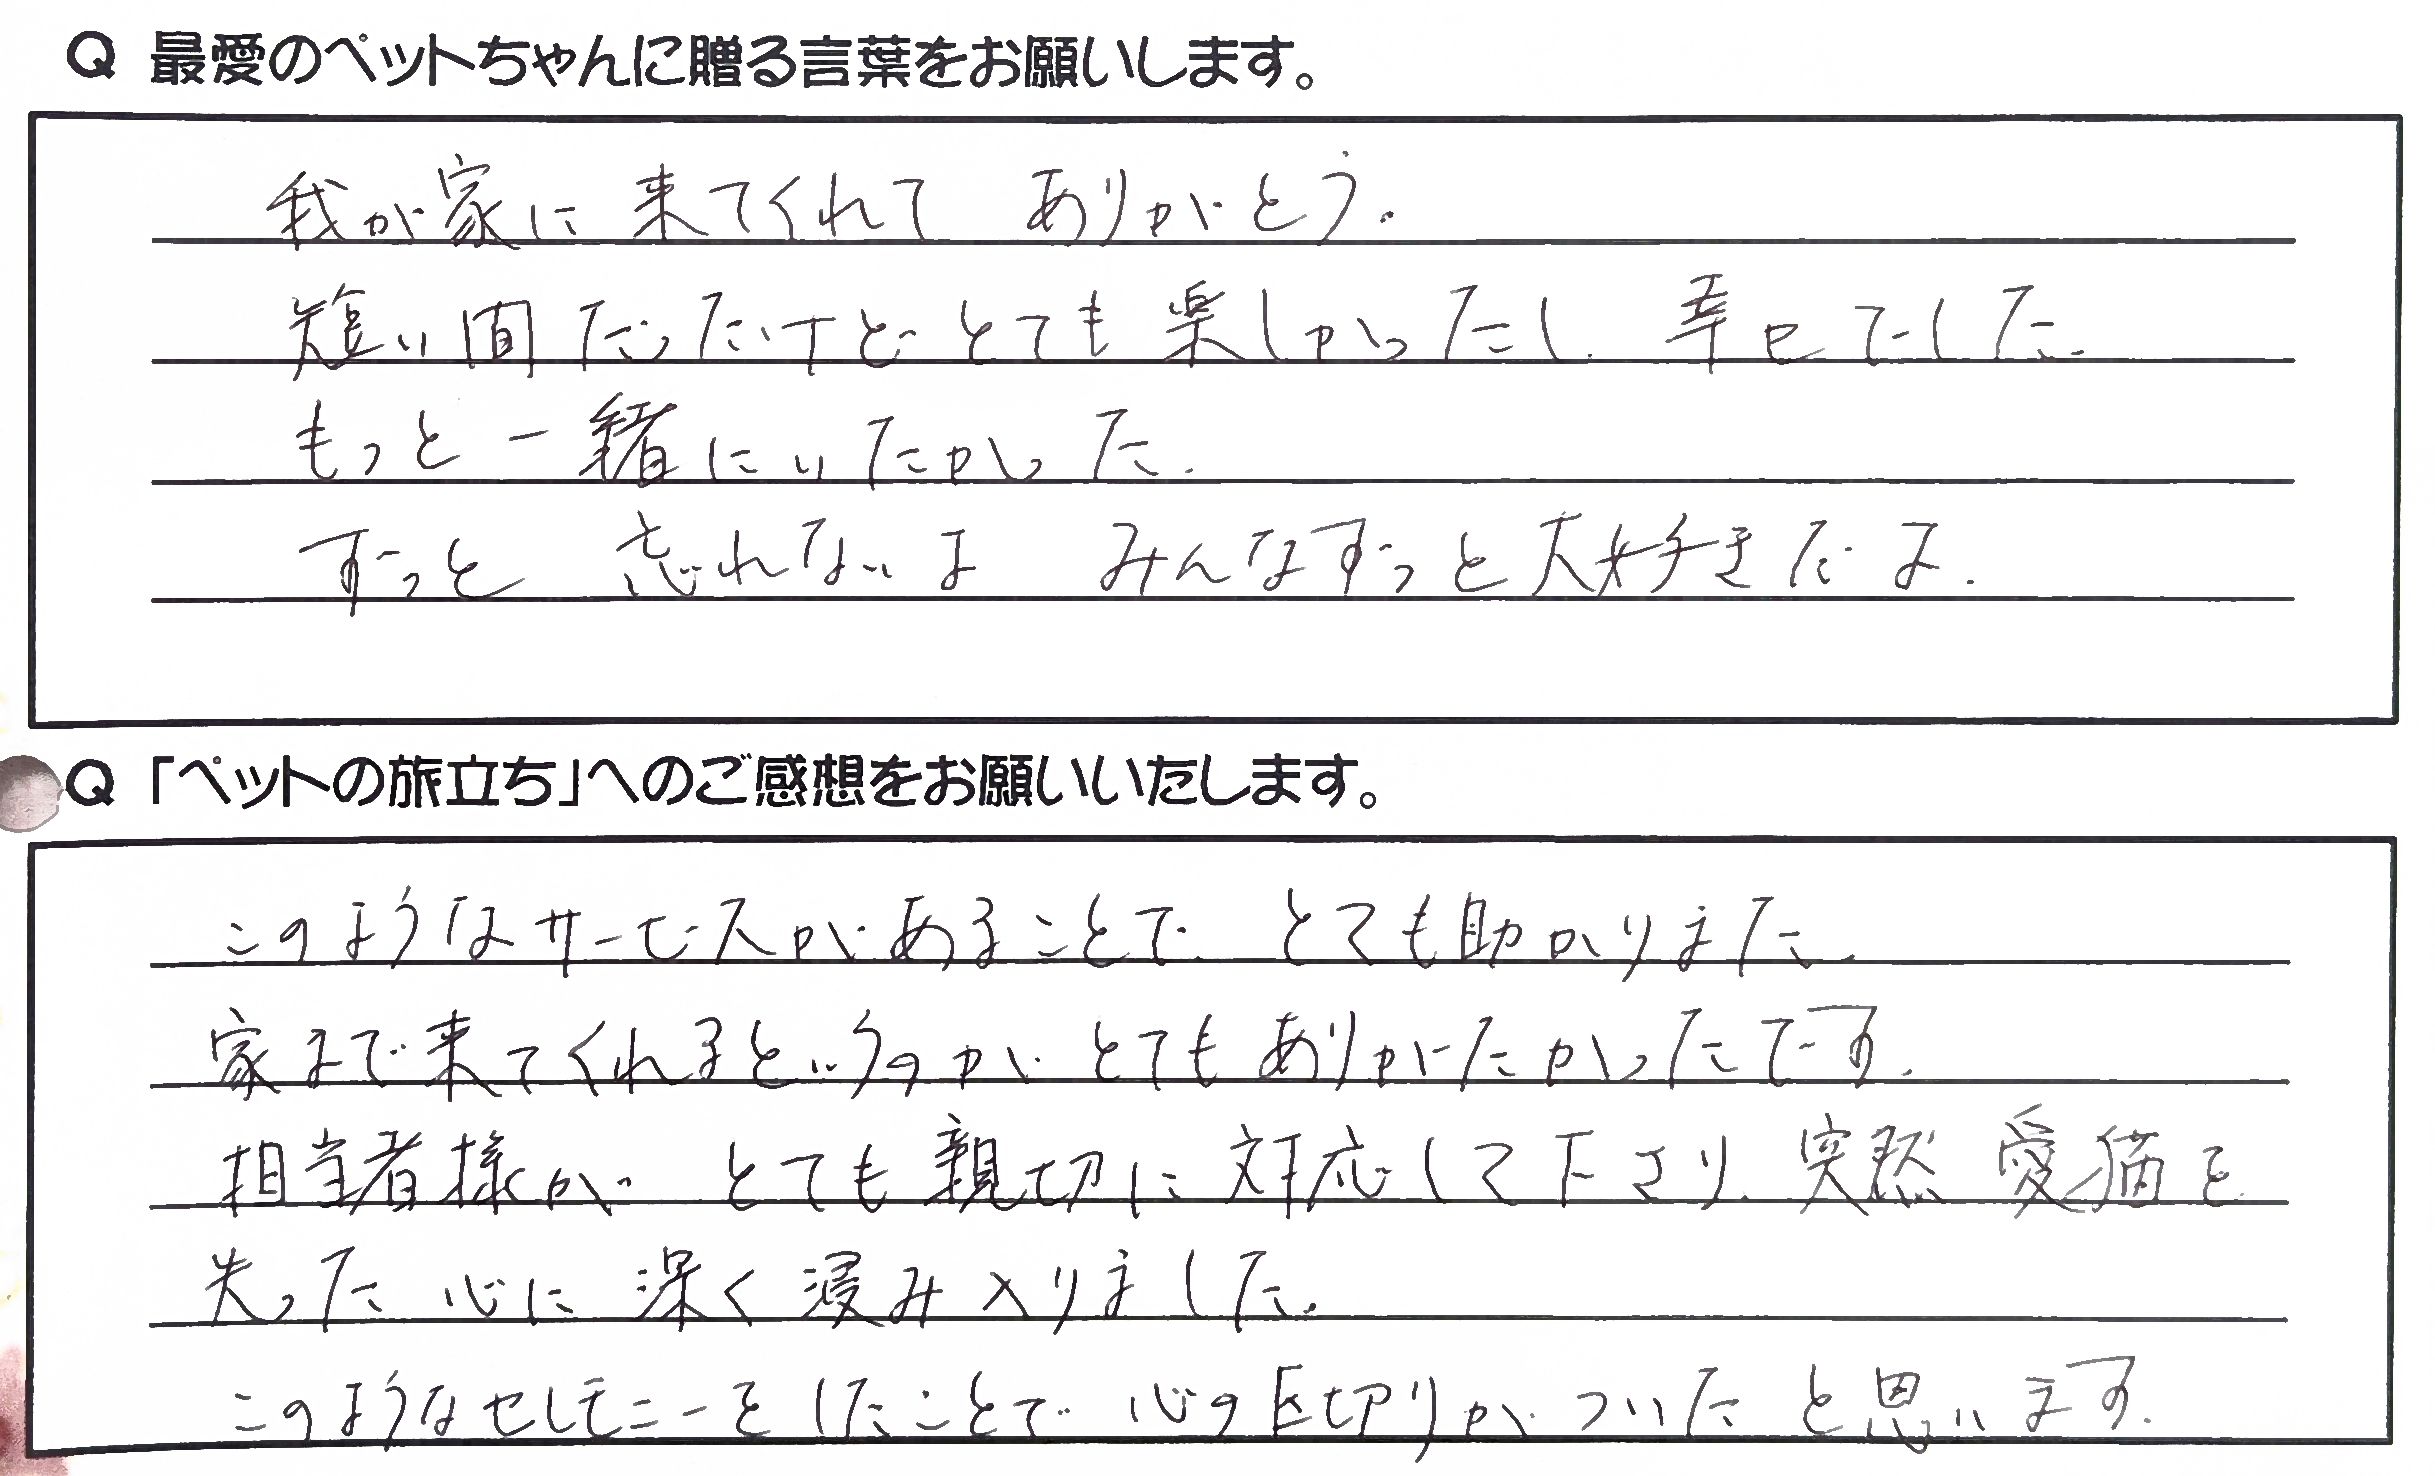 Q 最愛のペットちゃんに贈る言葉をお願いします。
我が家に来てくれて ありがとう.
短い間だったけど とても楽しかったし 幸せでした.
もっと一緒にいたかった.
ずっと 忘れないよ みんなずっと大好きだよ.
Q 「ペットの旅立ち」へのご感想をお願いいたします。
このようなサービスがあることで とても助かりました.
家まで来てくれるというのが とてもありがたかったです.
担当者様が とても親切に対応して下さり、突然 愛猫を
失った心に 深く浸み入りました.
このようなセレモニーをしたことで 心の区切りがついたと思います.